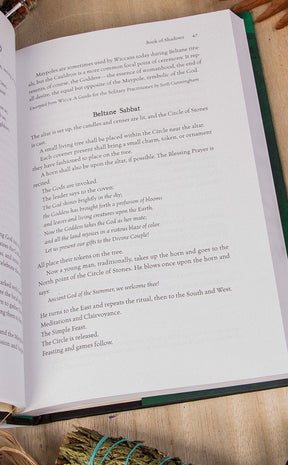 Book of Shadows 47
Maypoles are sometimes used by Wiccans today during Beltane rite
als, but the Cauldron is a more common focal point of ceremony. It rep-
resents, of course, the Goddess—the essence of womanhood, the end of
all desire, the equal but opposite of the Maypole, symbolic of the God.
Excerpted from Wicca: A Guide for the Solitary Practitioner by Scott Cunningham.
Beltane Sabbat
The altar is set up, the candles and censer are lit, and the Circle of Stones
is cast.
A small living tree shall be placed within the Circle near the altar.
Each covener present shall bring a small charm, token, or ornament
they have fashioned to place on the tree.
A horn shall also be upon the altar, if possible. The Blessing Prayer is
recited.
The Gods are invoked.
The leader says to the coven:
The God shines brightly in the sky,
the Goddess has brought forth a profusion of blooms
and leaves and living creatures upon the Earth.
Now the Goddess takes the God as her mate,
and all the land rejoices in a riotous blaze of color.
Let us present our gifts to the Divine Couple!
All place their tokens on the tree.
Now a young man, traditionally, takes up the horn and goes to the
North point of the Circle of Stones. He blows once upon the horn and
says:
Ancient God of the Summer, we welcome thee!
He turns to the East and repeats the ritual, then to the South and West.
Meditations and Clairvoyance.
The Simple Feast.
The Circle is released.
Feasting and games follow.